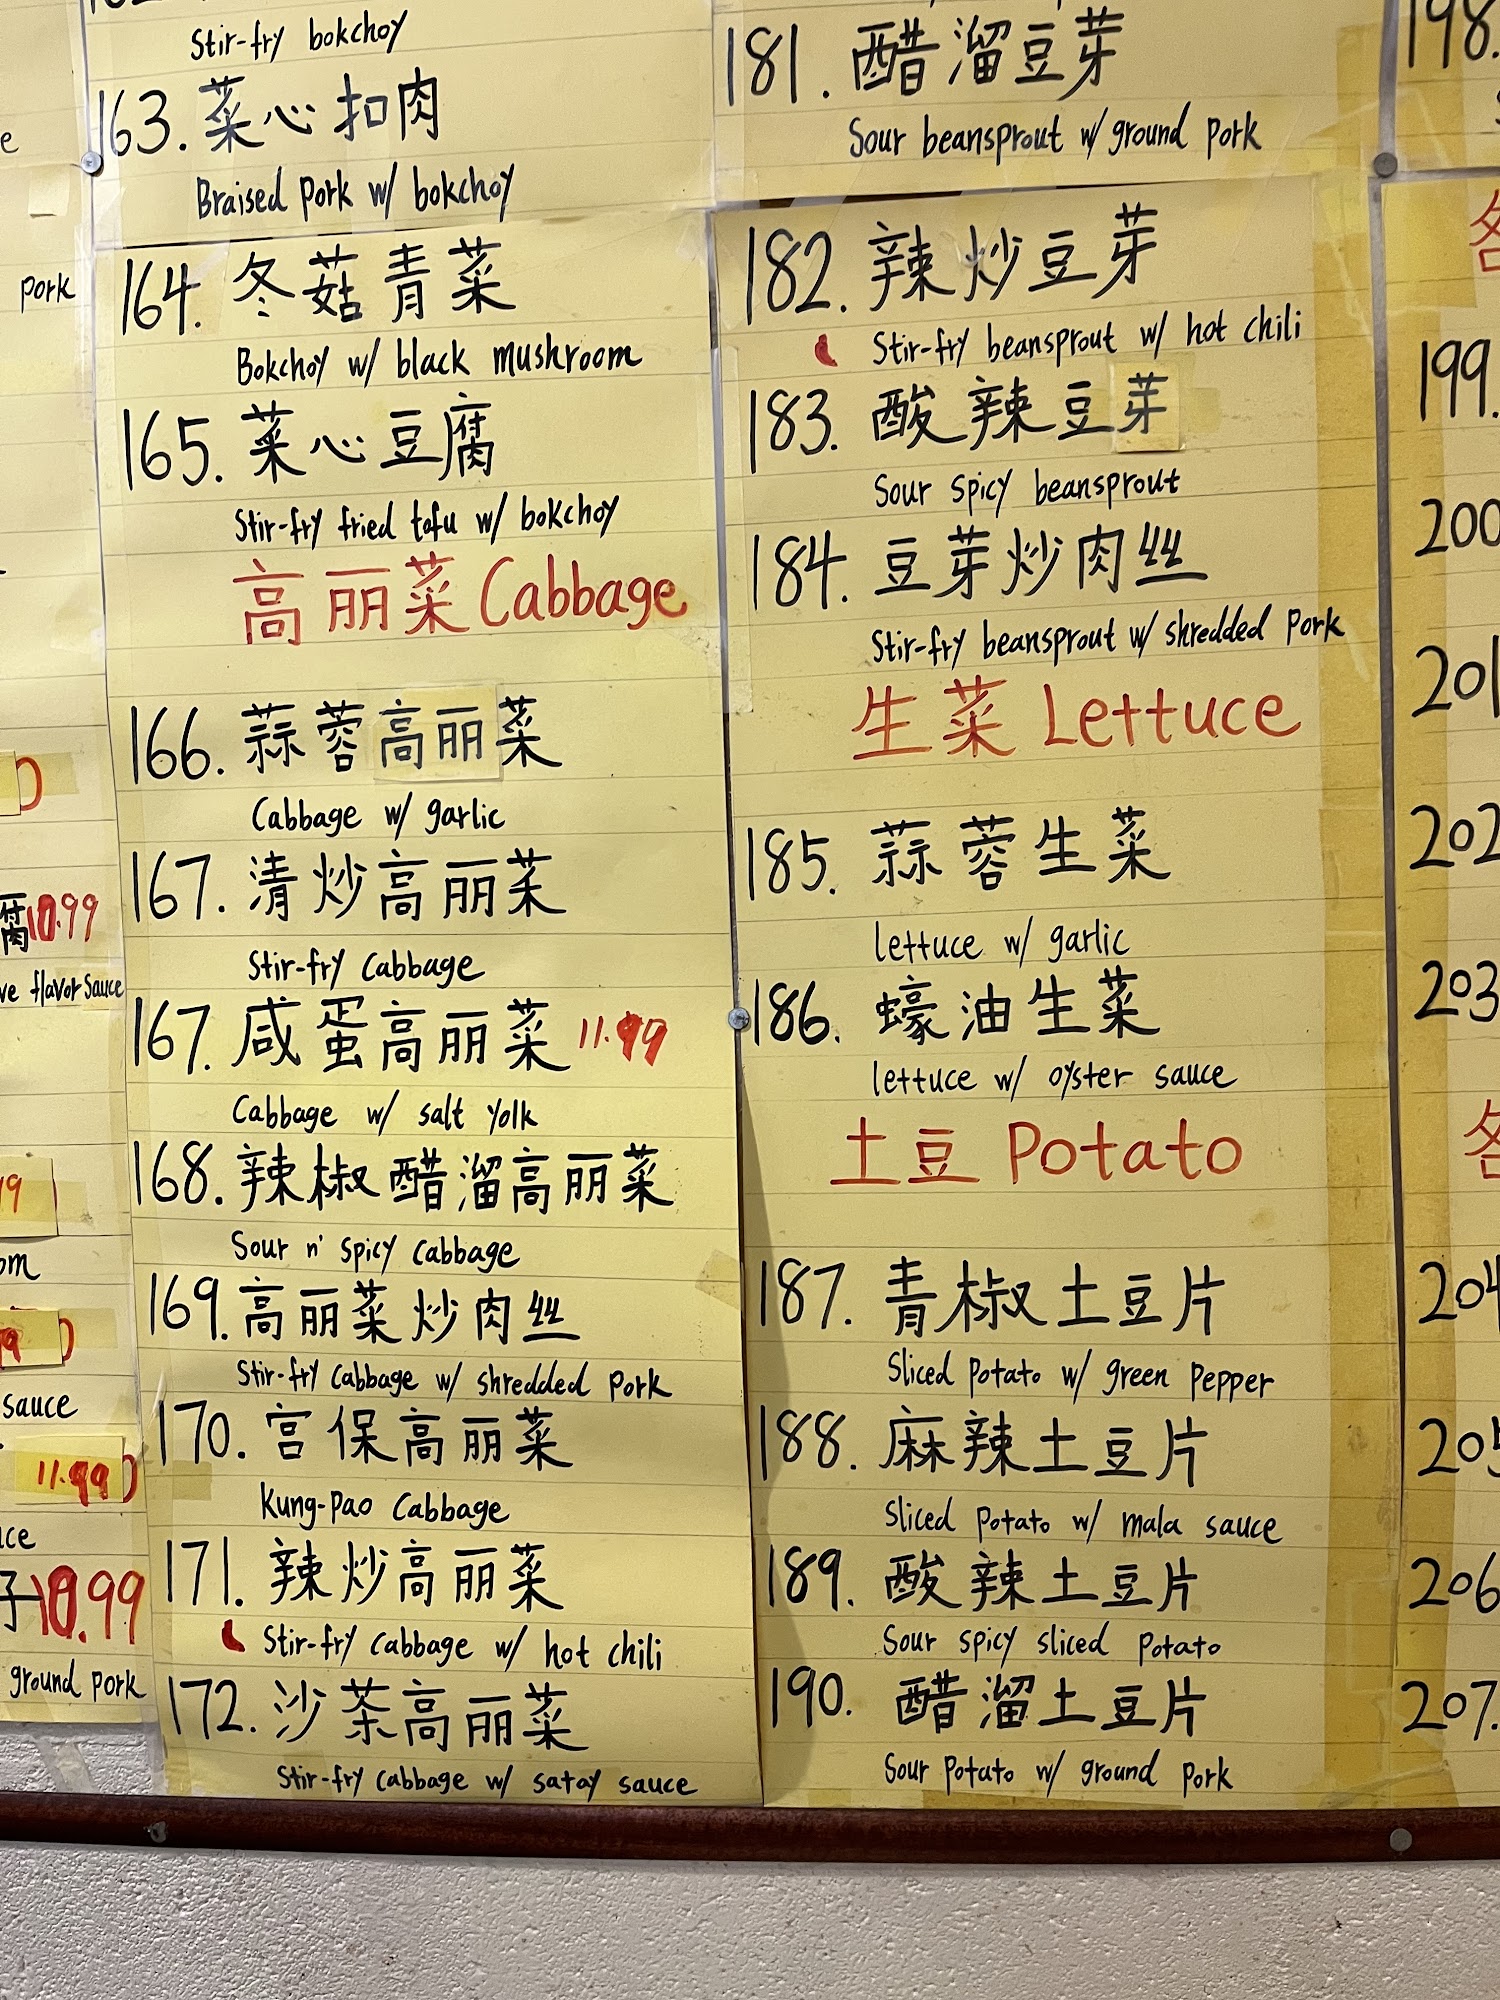 Stir-fry bokchoy
163. 菜心扣肉
Braised pork w/ bokchoy
164. 冬菇青菜
Bokchoy w/ black mushroom
165. 菜心豆腐
Stir-fry fried tofu w/ bokchoy
高丽菜 Cabbage
166. 蒜蓉高丽菜
Cabbage w/ garlic
167. 清炒高丽菜
Stir-fry Cabbage
167. 咸蛋高丽菜 11.99
Cabbage w/ salt yolk
168. 辣椒醋溜高丽菜
Sour n' spicy cabbage
169. 高丽菜炒肉丝
Stir-fry cabbage w/ shredded pork
170. 宫保高丽菜
Kung-Pao Cabbage
171. 辣炒高丽菜
Stir-fry cabbage w/ hot chili
172. 沙茶高丽菜
Stir-fry cabbage w/ satay sauce
181. 醋溜豆芽
Sour beansprout w/ ground pork
182. 辣炒豆芽
Stir-fry beansprout w/ hot chili
183. 酸辣豆芽
Sour spicy beansprout
184. 豆芽炒肉丝
Stir-fry beansprout w/ shredded pork
生菜 Lettuce
185. 蒜蓉生菜
lettuce w/ garlic
186. 蠔油生菜
lettuce w/ oyster sauce
土豆 Potato
187. 青椒土豆片
Sliced potato w/ green pepper
188. 麻辣土豆片
Sliced potato w/ mala sauce
189. 酸辣土豆片
Sour spicy sliced potato
190. 醋溜土豆片
Sour potato w/ ground pork
pork
腐 10.99
flavor sauce
sauce
11.99
子 10.99
ground pork
198.
199.
200
201
202
203
204
206
207.